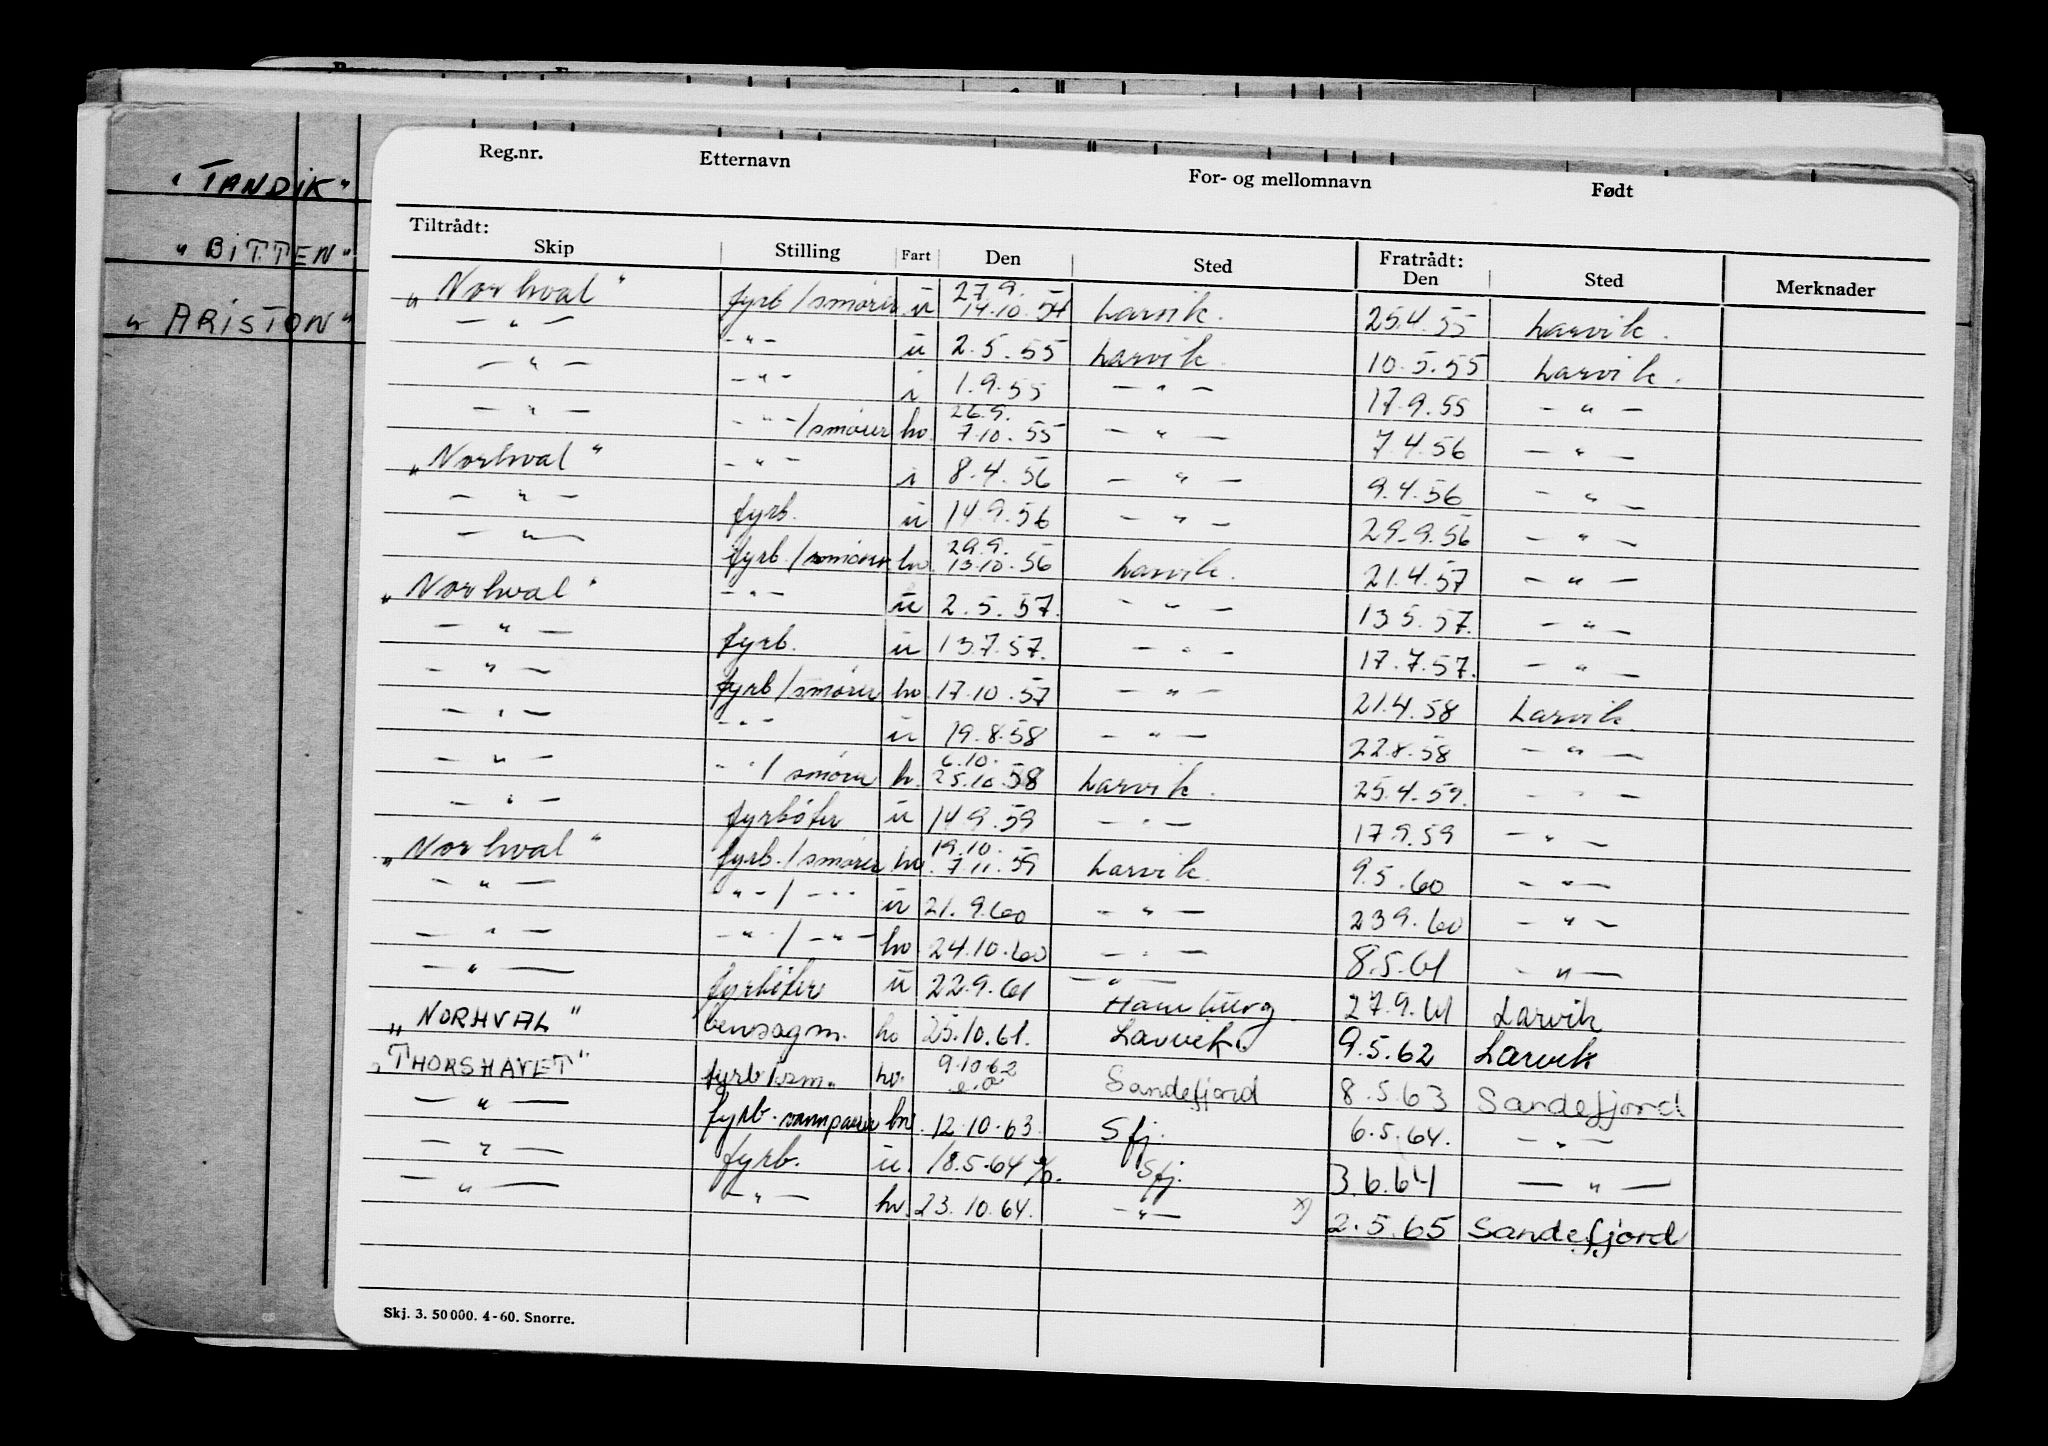 "TANDIK"
"BITTEN"
"ARISTON"
Reg.nr. Etternavn For- og mellomnavn Født
Tiltrådt: Fratrådt:
Skip Stilling Fart Den Sted Den Sted Merknader
"Norhval" fyrb/smører u 27.9. 14.10.54 Larvik. 25.4.55 Larvik.
— " — - " - u 2.5.55 Larvik. 10.5.55 Larvik.
— " — - " - i 1.9.55 — " — 17.9.55 — " —
— " — - " -/smører hv. 26.9. 7.10.55 — " — 7.4.56 — " —
"Norhval" - " - i 8.4.56 — " — 9.4.56 — " —
— " — fyrb. u 14.9.56 — " — 29.9.56 — " —
— " — fyrb./smører hv. 29.9. 13.10.56 Larvik. 21.4.57 — " —
"Norhval" - " - u 2.5.57. — " — 13.5.57. — " —
— " — fyrb. u 13.7.57. — " — 17.7.57. — " —
— " — fyrb/smører hv 17.10.57 — " — 21.4.58 Larvik.
— " — - " - u 19.8.58 — " — 22.8.58 — " —
— " — - " / smører hv. 6.10. 25.10.58 Larvik. 25.4.59. — " —
— " — fyrbøter u 14.9.59 — " — 17.9.59 — " —
"Norhval" fyrb./smører hv 19.10. 7.11.59 Larvik. 9.5.60 — " —
— " — - " -/- " - u 21.9.60 — " — 23.9.60 — " —
— " — - " -/- " - hv 24.10.60 — " — 8.5.61 — " —
— " — fyrbøter u 22.9.61 — " — Hamburg 27.9.61 Larvik
"NORHVAL" bensagm. hv 25.10.61. Larvik 9.5.62 Larvik
"THORSHAVET" fyrb/sm. hv. 9.10.62 e.o Sandefjord 8.5.63 Sandefjord
— " — fyrb. hv. 12.10.63. Sfj. 6.5.64. — " —
— " — fyrb. u. 18.5.64 Sfj. 3.6.64 — " —
— " — — " — hv. 23.10.64. — " — x) 2.5.65 Sandefjord
Skj. 3. 50 000. 4-60. Snorre.